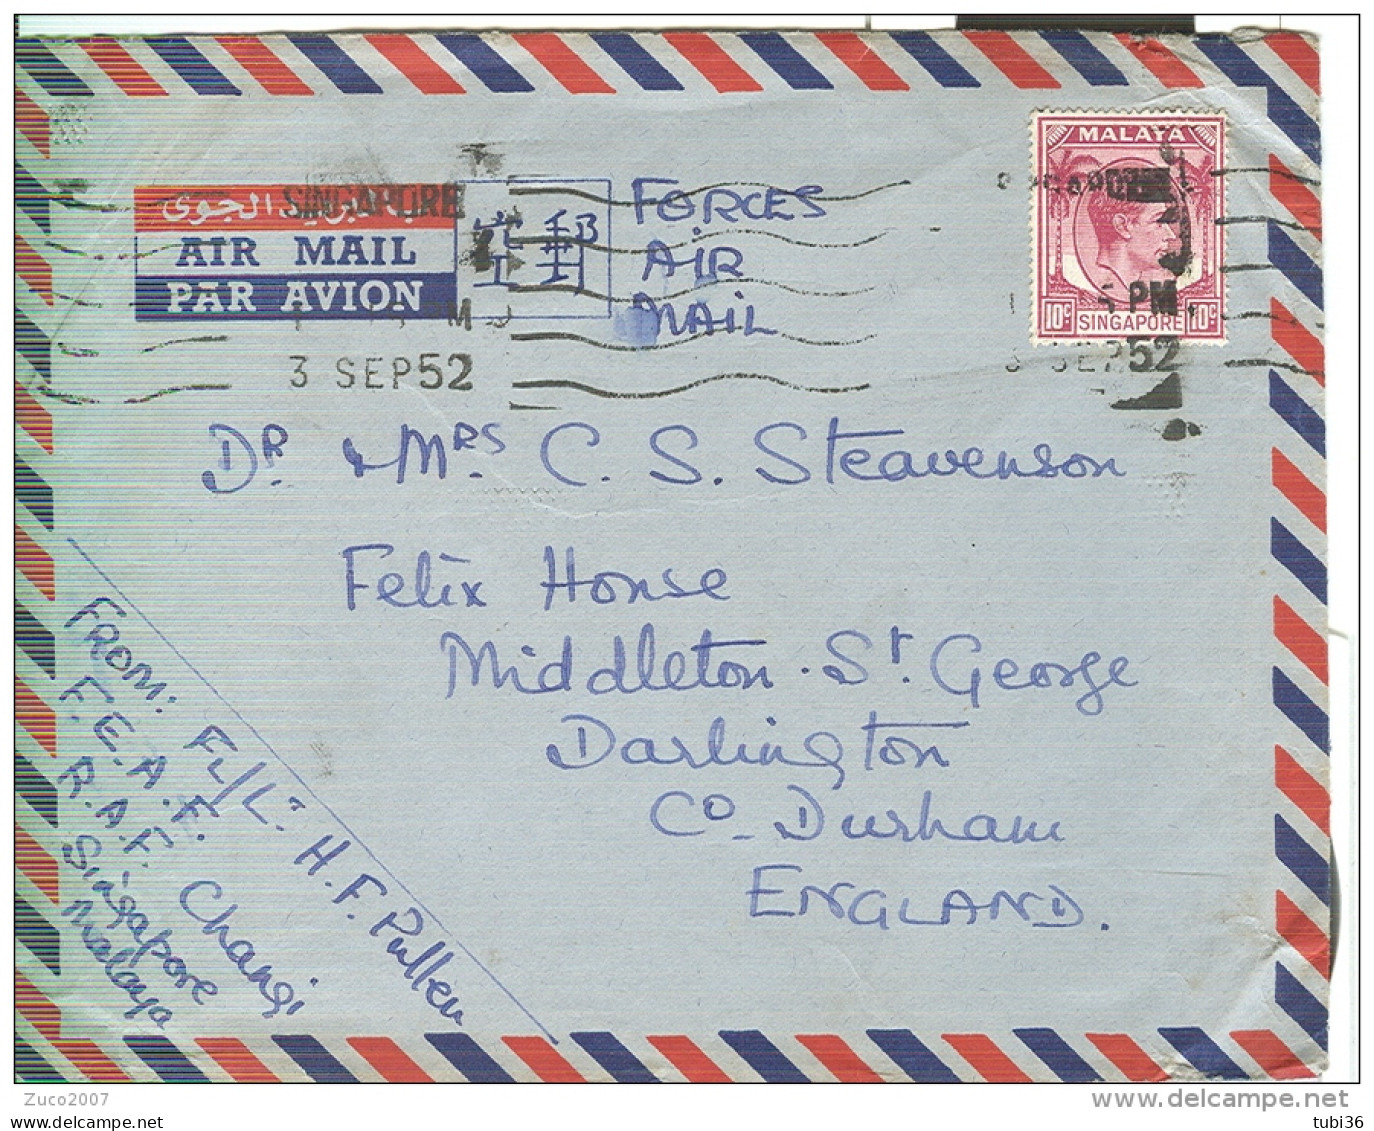 MALAYA
10c SINGAPORE 10c
SINGAPORE
AIR MAIL
PAR AVION
FORCES
AIR
MAIL
PM
3 SEP 52
52
DR & MRS C. S. Steavenson
Felix House
Middleton. St. George
Darlington
Co. Durham
ENGLAND.
FROM: FL/L- H. F. Pullen
F.E.A.F.
R.A.F. Changi
Singapore
Malaya
Zuco2007
www.delcampe.net
tubi36